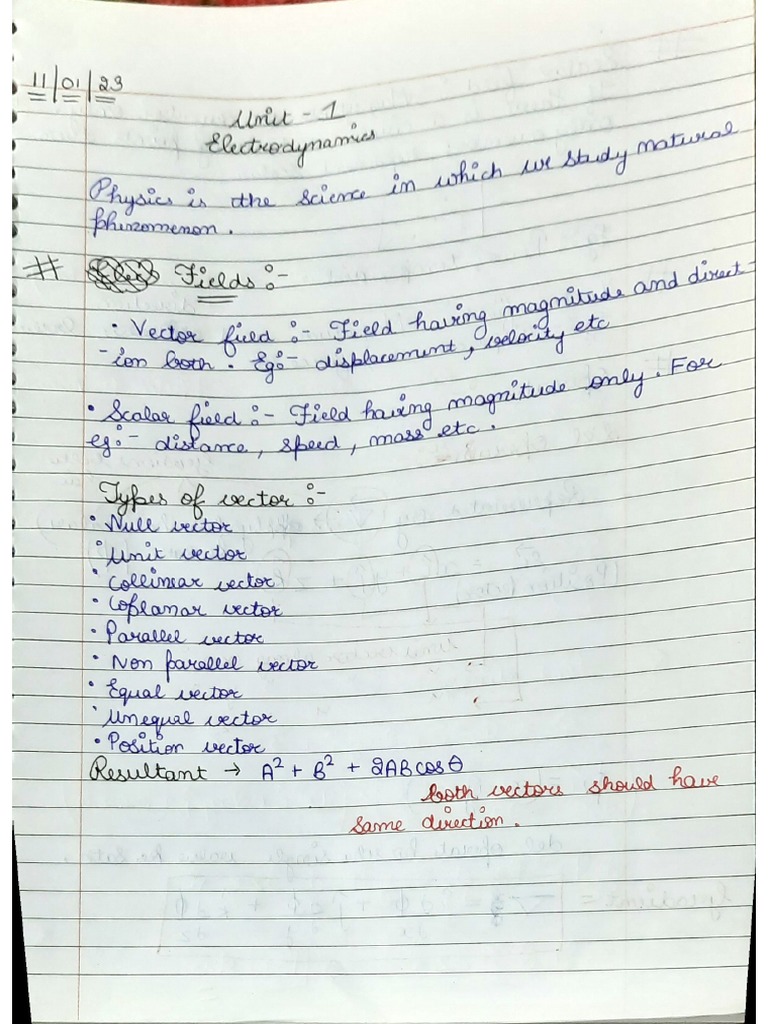 11/01/23
Unit - 1
Electrodynamics
Physics is the science in which we study natural
phenomenon.
# Fields :-
• Vector field :- Field having magnitude and direct-
-ion both. Eg:- displacement, velocity etc
• Scalar field :- Field having magnitude only. For
eg:- distance, speed, mass etc.
Types of vector :-
• Null vector
• Unit vector
• Collinear vector
• Coplanar vector
• Parallel vector
• Non parallel vector
• Equal vector
• Unequal vector
• Position vector
Resultant → A² + B² + 2AB cos θ
both vectors should have
same direction.